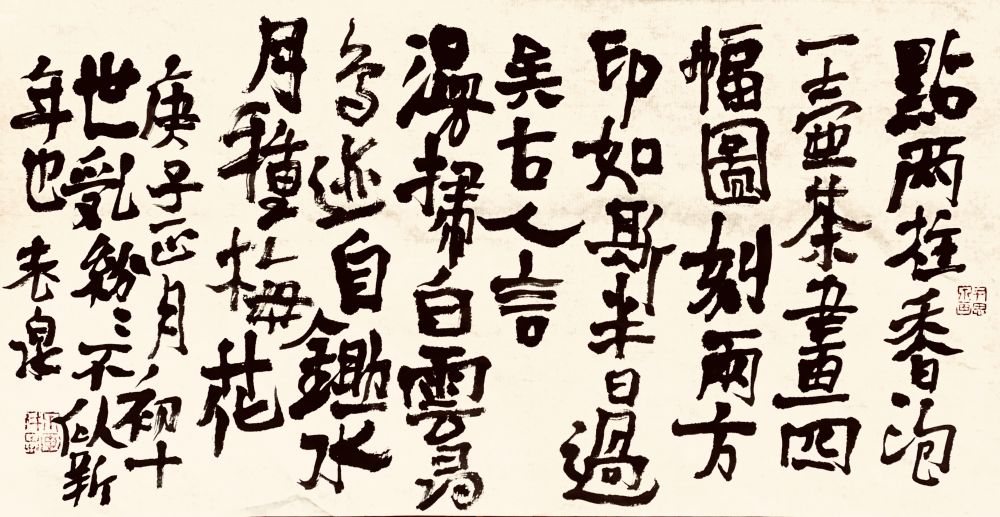 點兩柱香泡
一壺茶畫四
幅圖刻兩方
印如斯半日過
矣古人言
漫掃白雲尋
鳥迹自鋤水
月種梅花
庚子正月初十
世乱紛三不似新
年也 老泉